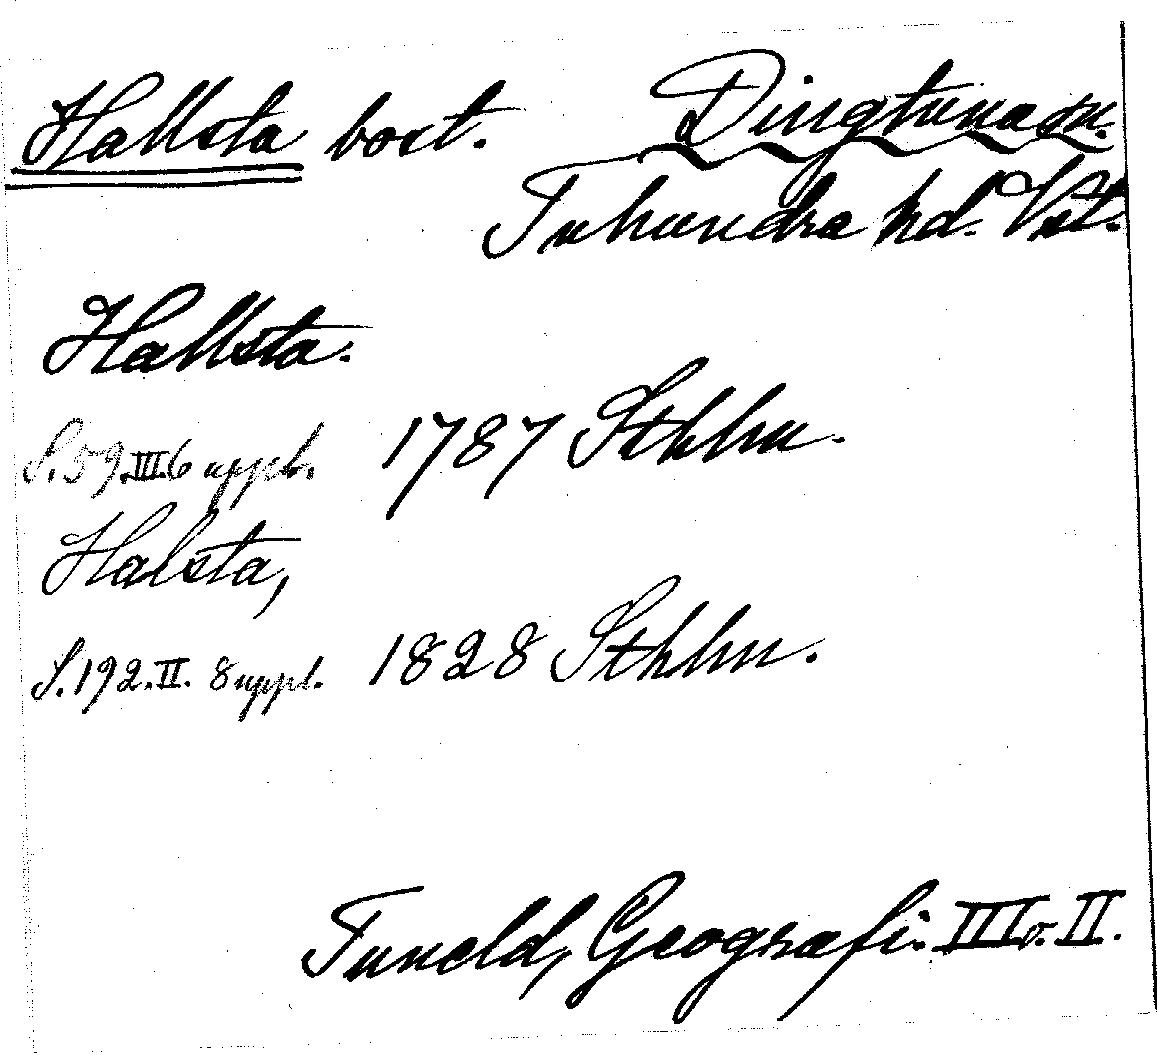 Hallsta bost. Dingtuna sn.
Tuhundra hd. Vst.
Hallsta.
S. 59. III. 6 uppl. 1787 Sthlm.
Halsta,
S. 192. II. 8 uppl. 1828 Sthlm.
Tuneld, Geografi. III o. II.